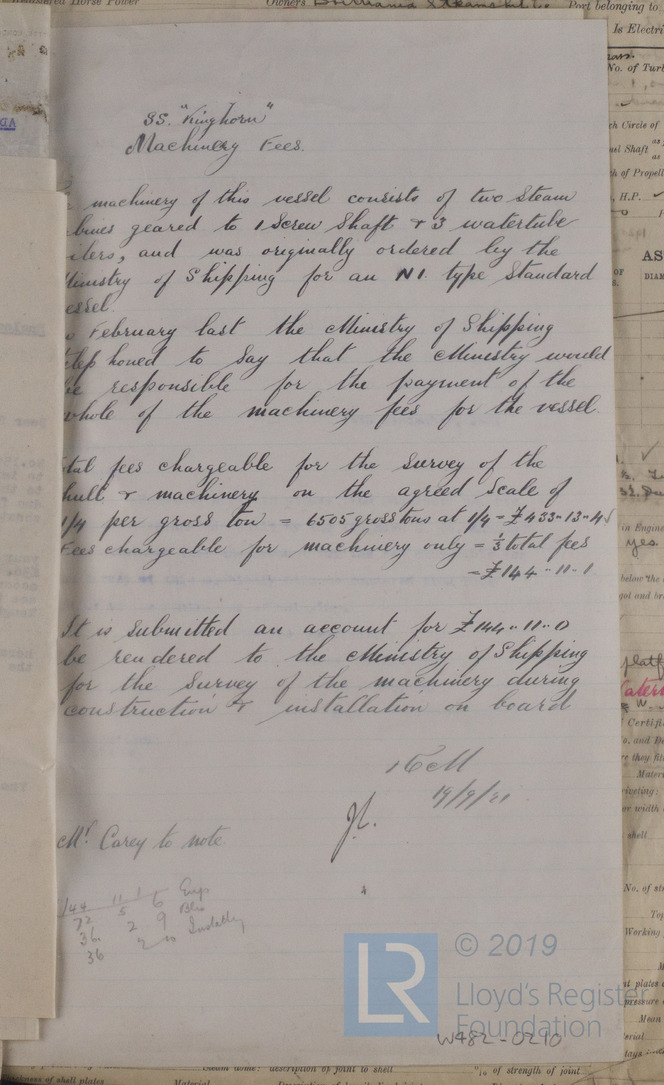 Owners Britannia Steamship Co Port belonging to
Is Electri
No. of Turb
ch Circle of
nel Shaft
h of Propell
H.P.
SS. "Kinghorn"
Machinery Fees.
machinery of this vessel consists of two Steam
bines geared to 1 Screw Shaft & 3 watertube
ilers, and was originally ordered by the
inistry of Shipping for an N1. type Standard
essel.
February last the Ministry of Shipping
lephoned to say that the Ministry would
be responsible for the payment of the
whole of the machinery fees for the vessel.
otal fees chargeable for the survey of the
hull & machinery on the agreed scale of
1/4 per gross ton = 6505 gross tons at 1/4 = £433-13-4
Fees chargeable for machinery only = 1/3 total fees
= £144-11-1
It is submitted an account for £144-11-0
be rendered to the Ministry of Shipping
for the survey of the machinery during
construction & installation on board
19/9/21
Mr. Carey to note.
144 11 1
72 5 6 Engs
36 2 9 Blrs
36
in Engine
yes.
below the
Certifi
Mater
iveting:
or width
shell
No. of st
Top
Working
© 2019
LR
Lloyd's Register
Foundation
W482-0210
Steam dome: description of joint to shell
% of strength of joint
ness of shell plates
Material